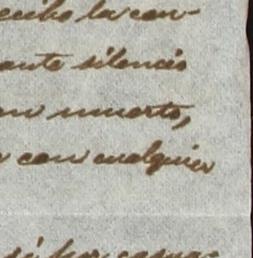 ecibo la con-
ante silencio
an muerto,
con cualquier